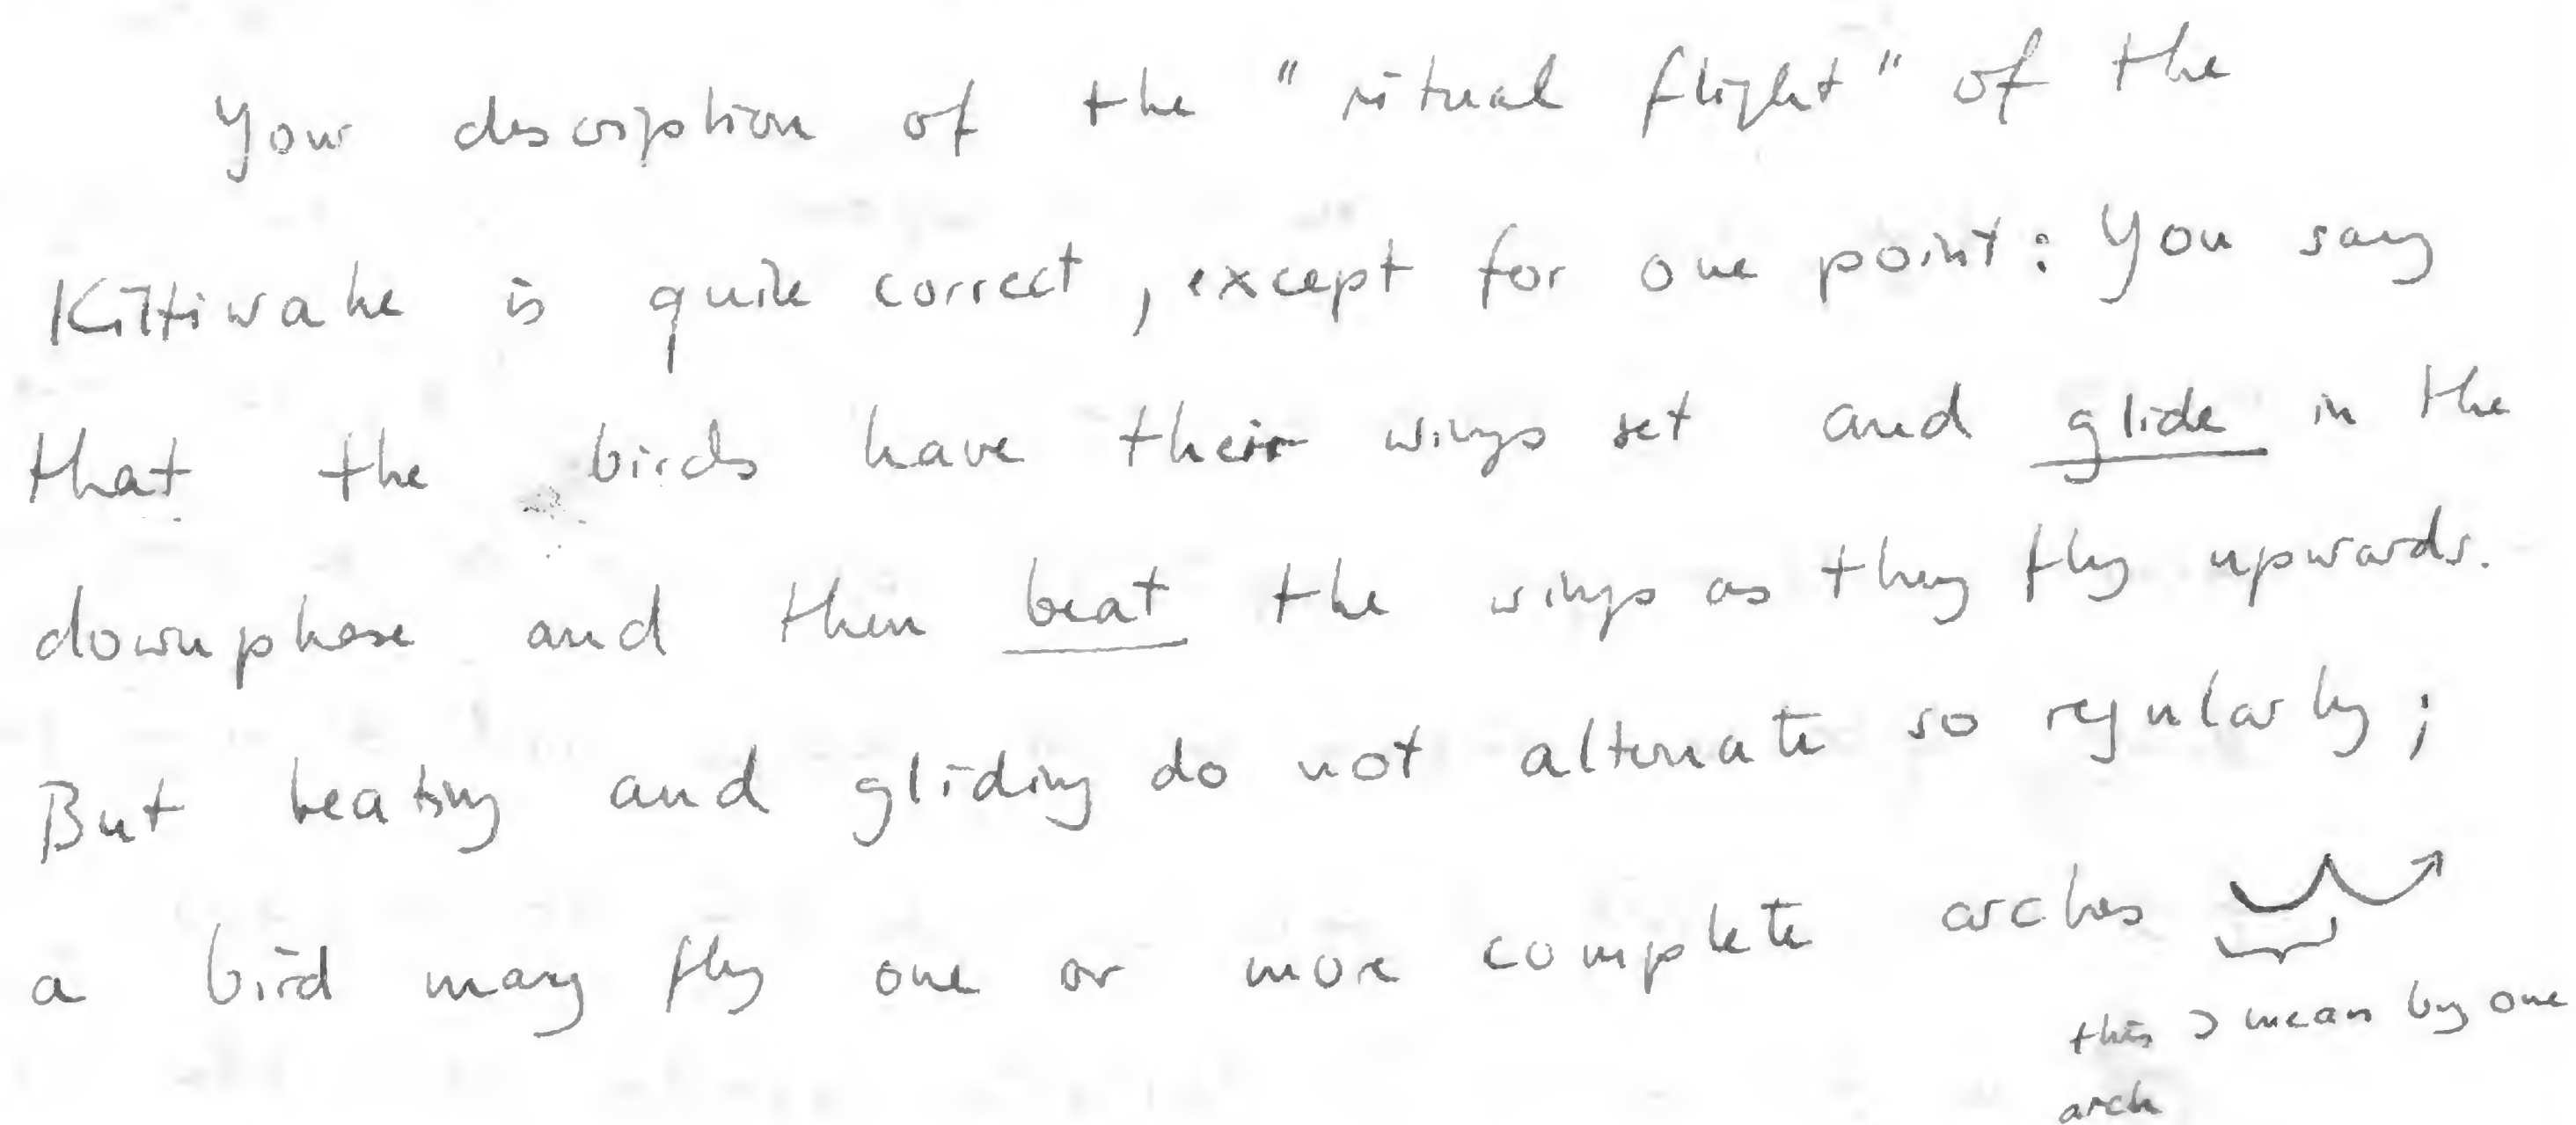 Your description of the "ritual flight" of the
Kittiwake is quite correct, except for one point: You say
that the birds have their wings set and glide in the
downphase and then beat the wings as they fly upwards.
But beating and gliding do not alternate so regularly;
a bird may fly one or more complete arches
this I mean by one
arch